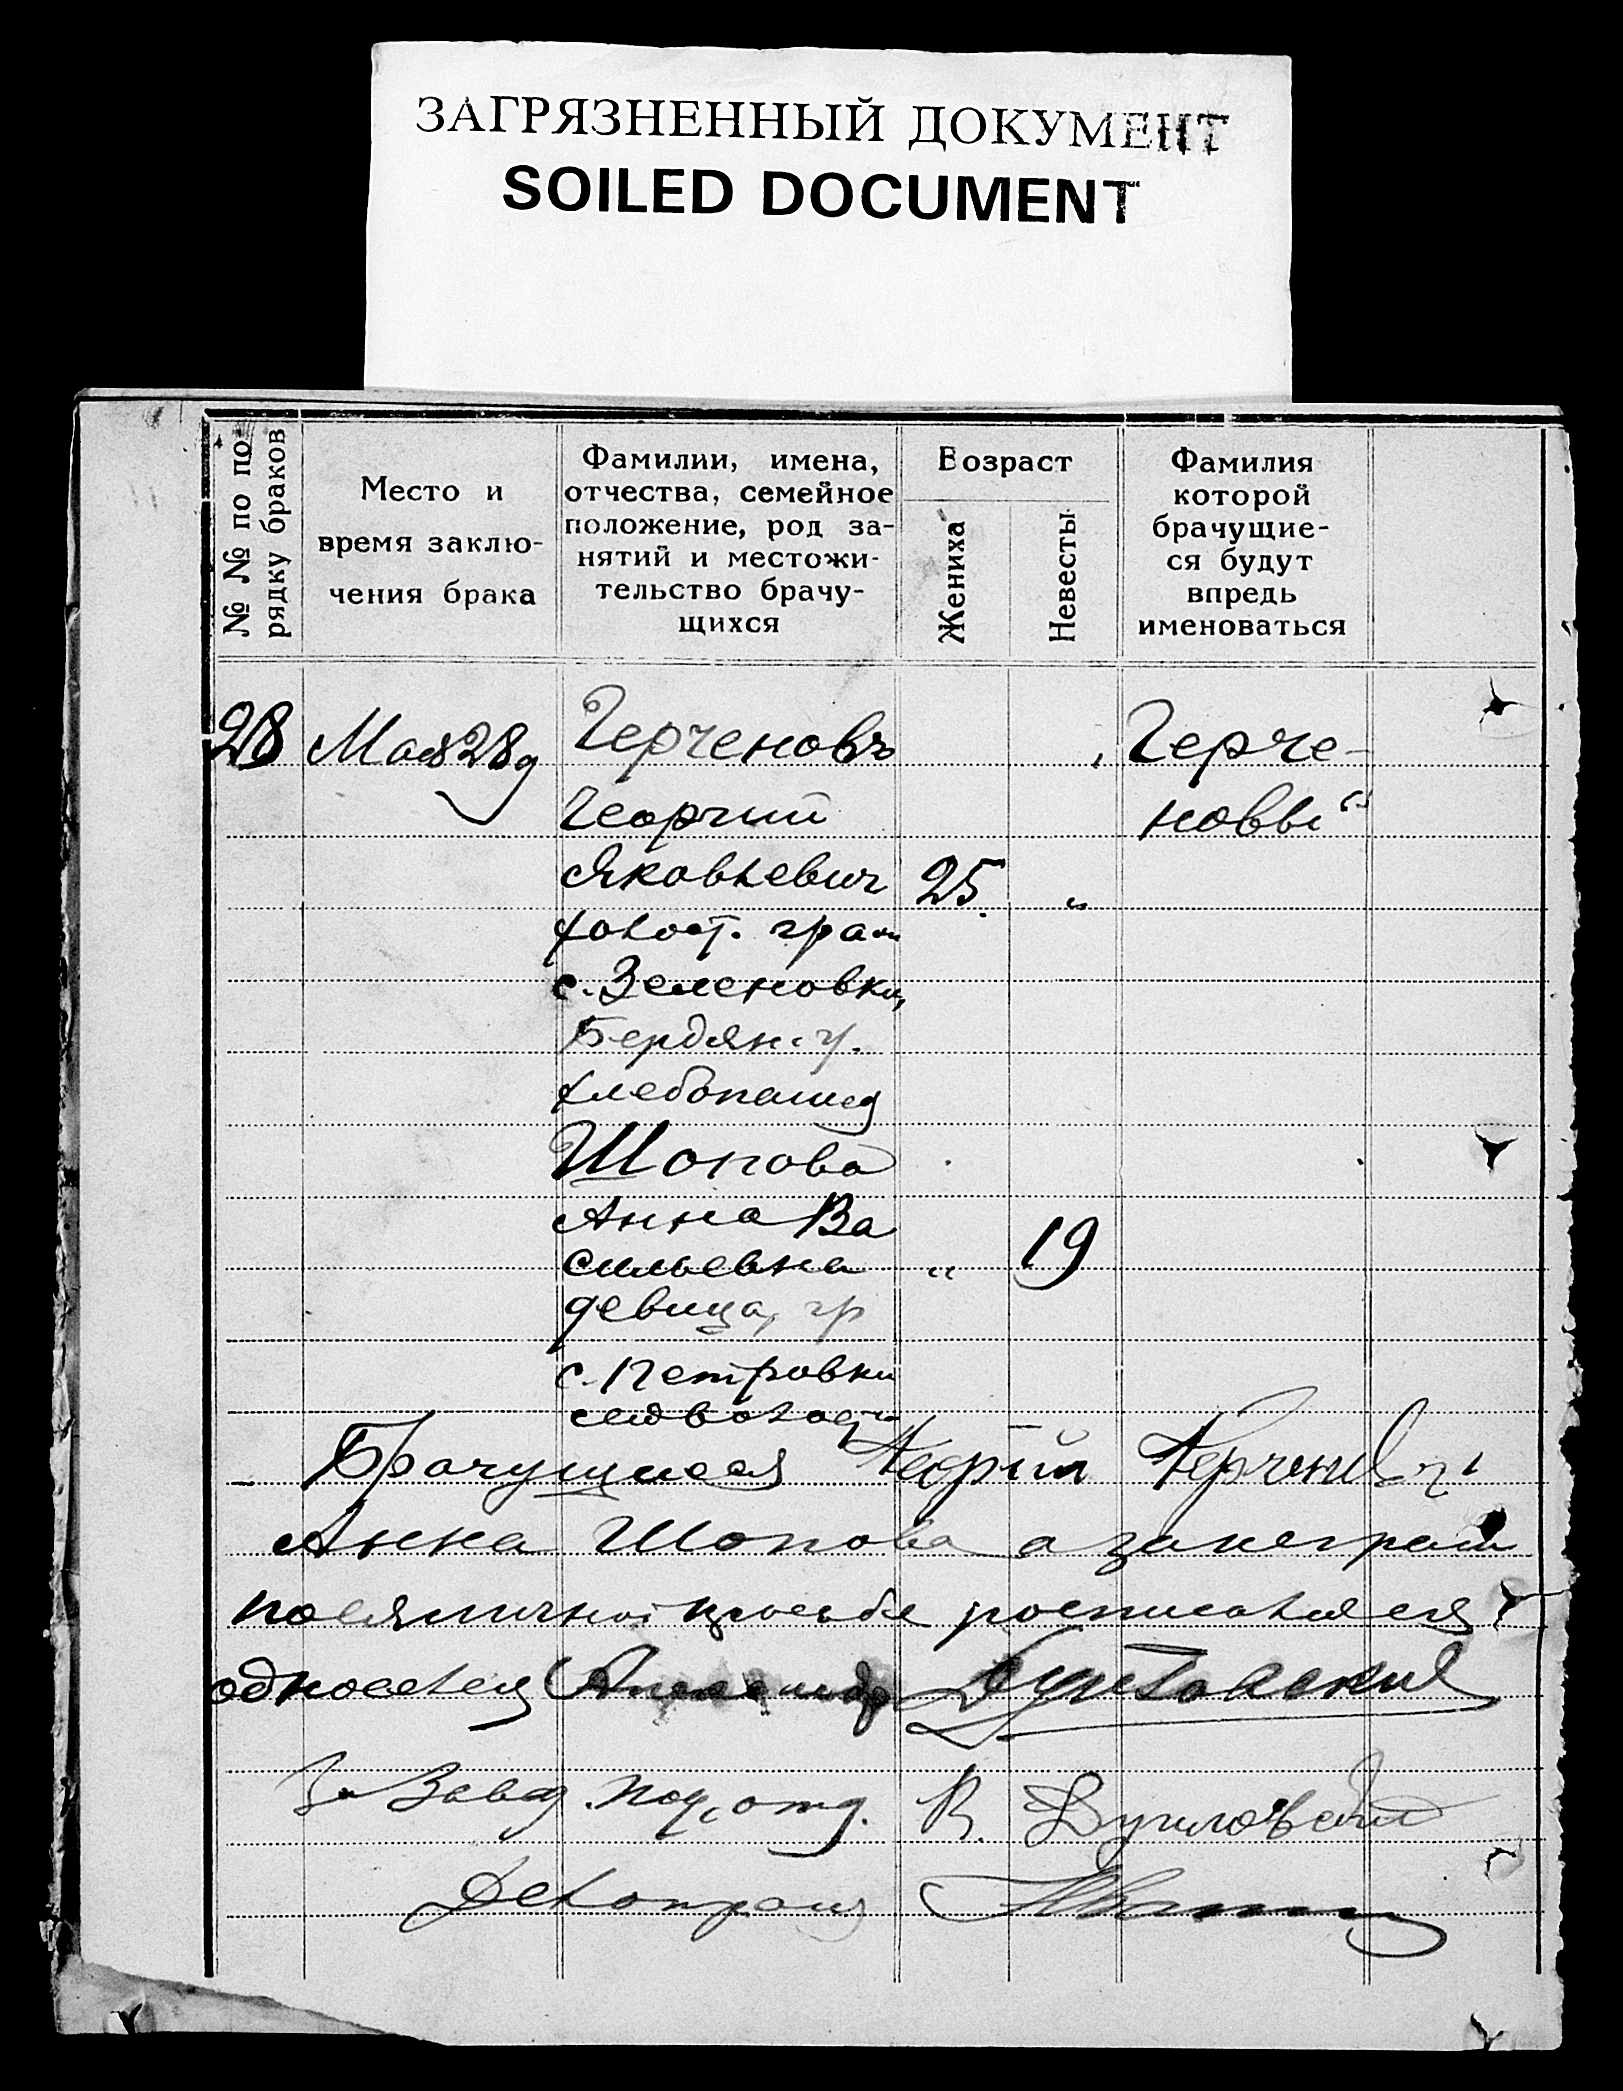 ЗАГРЯЗНЕННЫЙ ДОКУМЕНТ
SOILED DOCUMENT
№ № по по-
рядку браков
Место и
время заклю-
чения брака
Фамилии, имена,
отчества, семейное
положение, род за-
нятий и местожи-
тельство брачу-
щихся
Возраст
Жениха
Невесты
Фамилия
которой
брачущие-
ся будут
впредь
именоваться
28 Мая 28д Герченовъ Герче-
Георгий новы
Яковлевич 25 "
холост. граж
с. Зеленовки,
Бердян. у.
хлебопашец
Шопова
Анна Ва
сильевна " 19
девица, гр
с. Петровки
Брачущиеся Георгий Герченов
Анна Шопова а за неграм
по ея личной просьбе росписался
односелец Александр
За Завед. под. отд. В.
Делопроиз